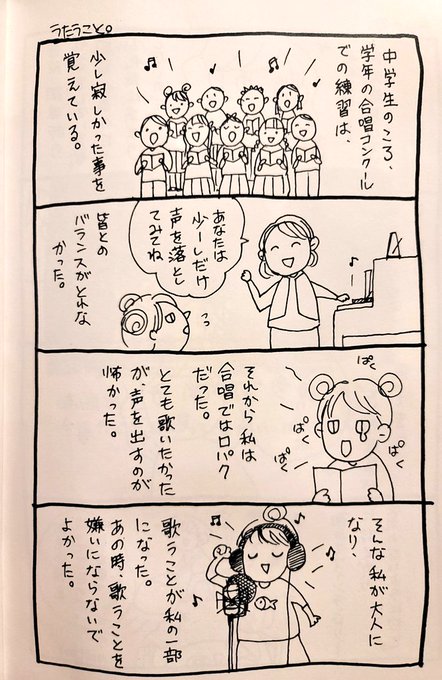 うたうこと。
中学生のころ、
学年の合唱コンクール
での練習は、
少し寂しかった事を
覚えている。
あなたは
少ーしだけ
声を落とし
てみてね
皆との
バランスがとれな
かった。
ぱく
ぱく
ぱく
ぱく
それから私は
合唱では口パク
だった。
とても歌いたかった
が、声を出すのが
怖かった。
そんな私が大人に
なり、
歌うことが私の一部
になった。
あの時、歌うことを
嫌いにならないで
よかった。